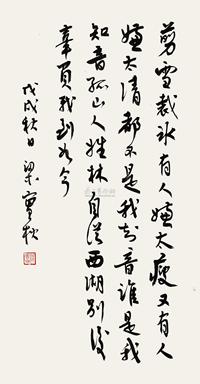 剪雪裁冰有人嫌太瘦又有人
嫌太清都不是我知音誰是我
知音孤山人姓林自從西湖別後
辜負我到如今
戊戌秋日 梁實秋